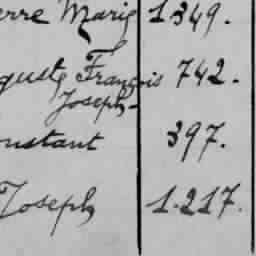 erre Marie 1349.
guste François 742.
Joseph-
onstant 397.
Joseph 1.217.